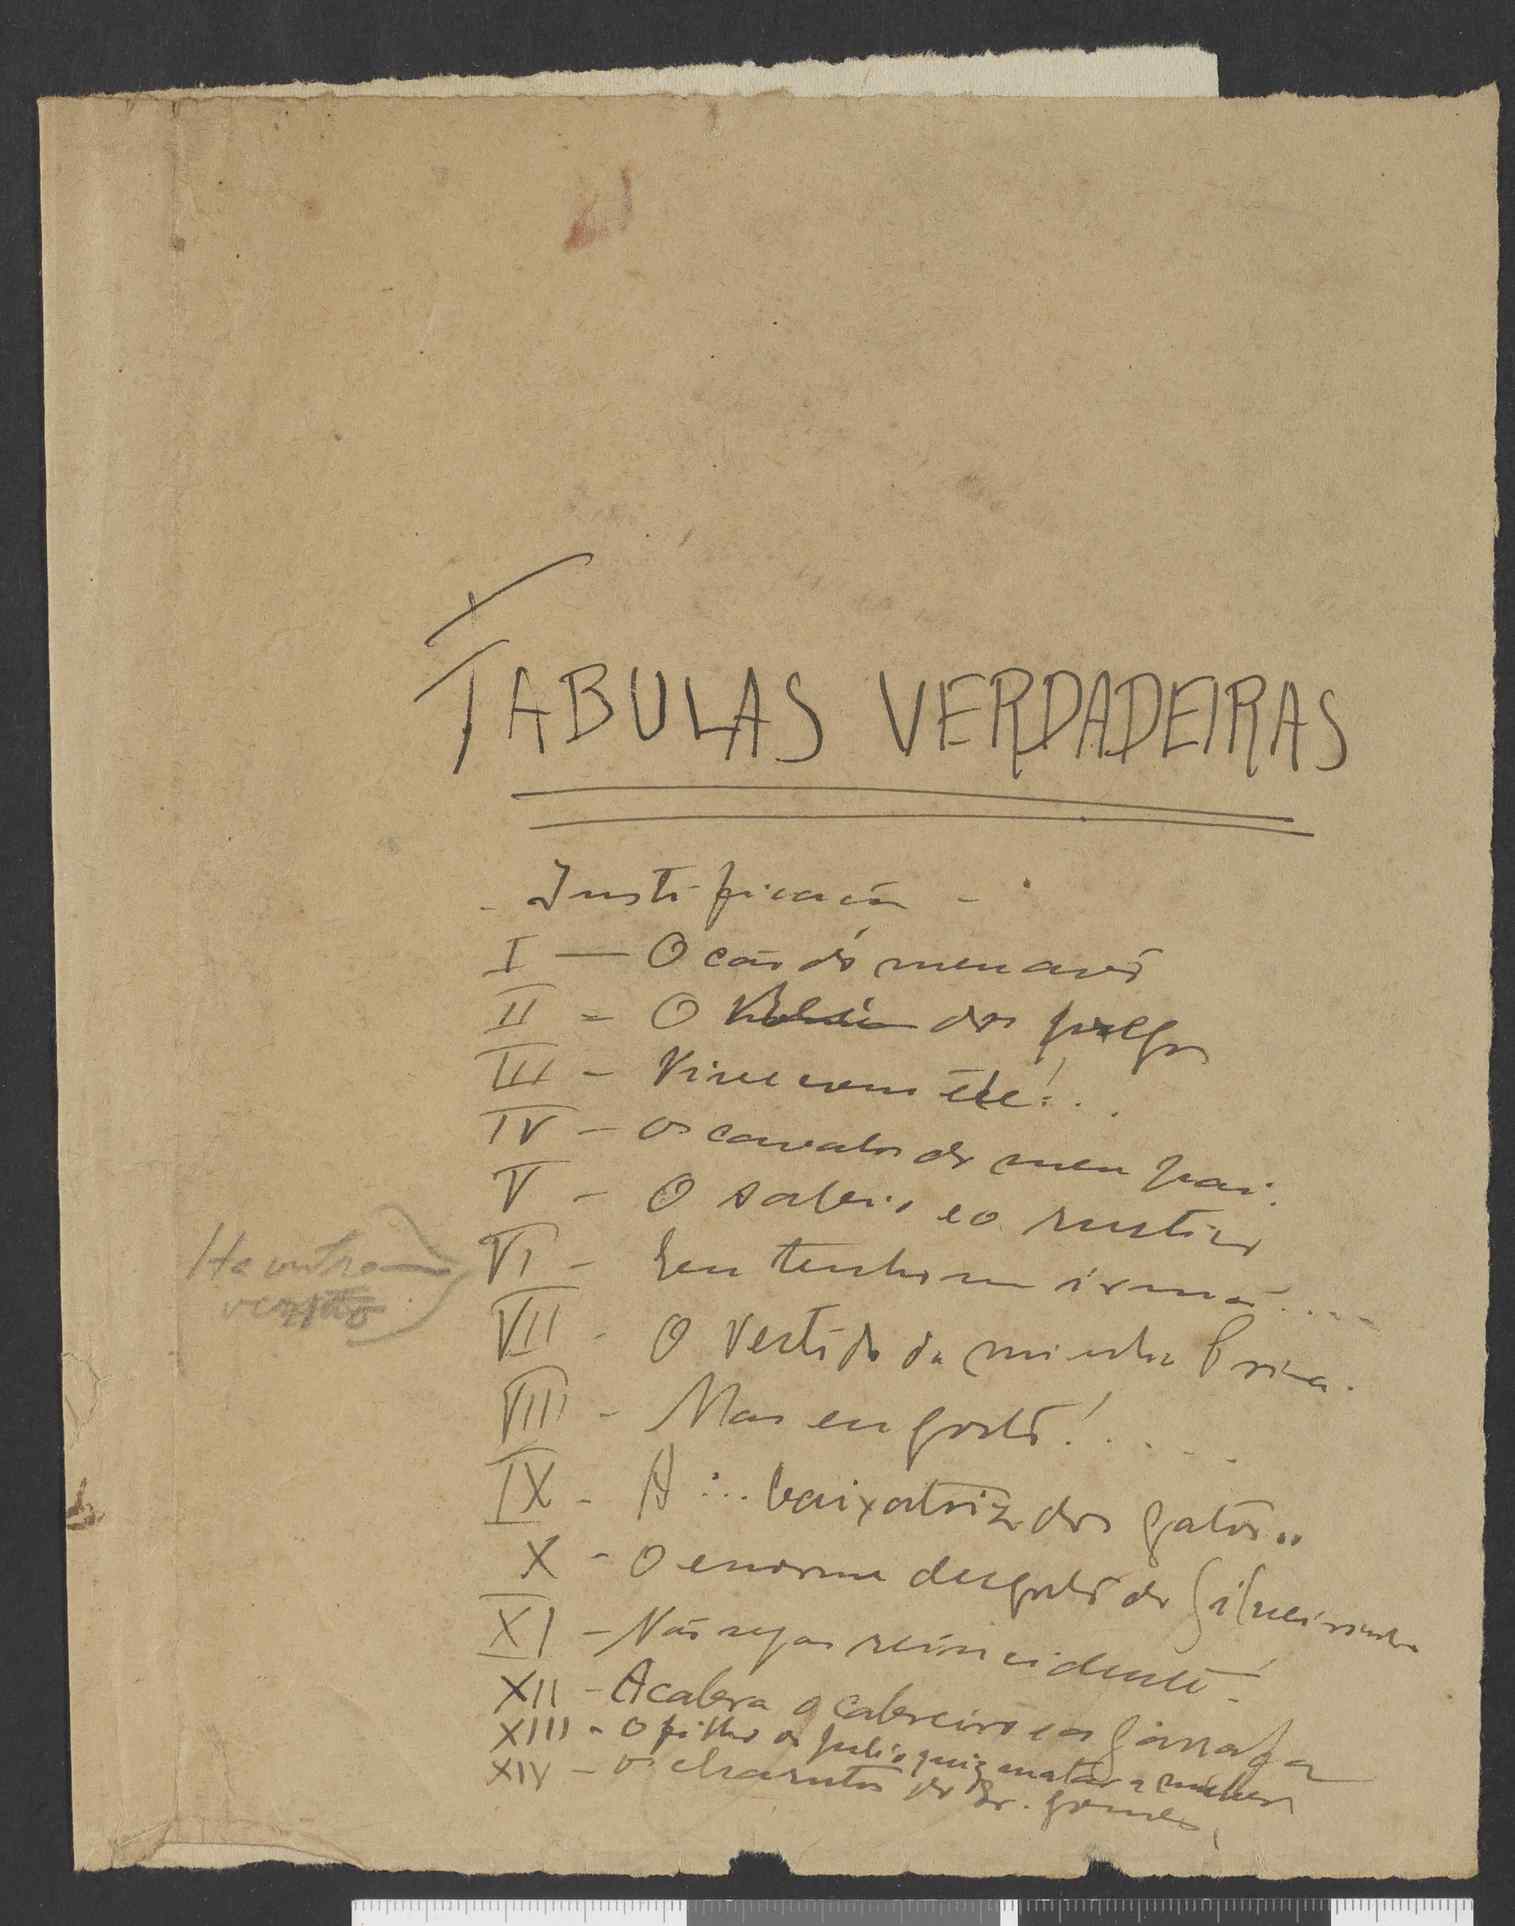 TABULAS VERDADEIRAS
- Justificação -
I — O cão do meu avô
II - O dos
III - Vive com êle!...
IV - os cavalos do meu pai.
V - O sabio e o rustico
Ha outra
versão
VI - Eu tenho um irmão....
VII - O vestido da minha Prima.
VIII - Mas eu gosto!....
IX - A ... baixatriz dos gatos..
X - O enorme desgosto do Silveirinha
XI - Não sejas reincidente!
XII - A cabra o cabreiro e a garrafa
XIII - O filho do Julio quiz matar a mulher
XIV - os charutos do Dr. Gomes.